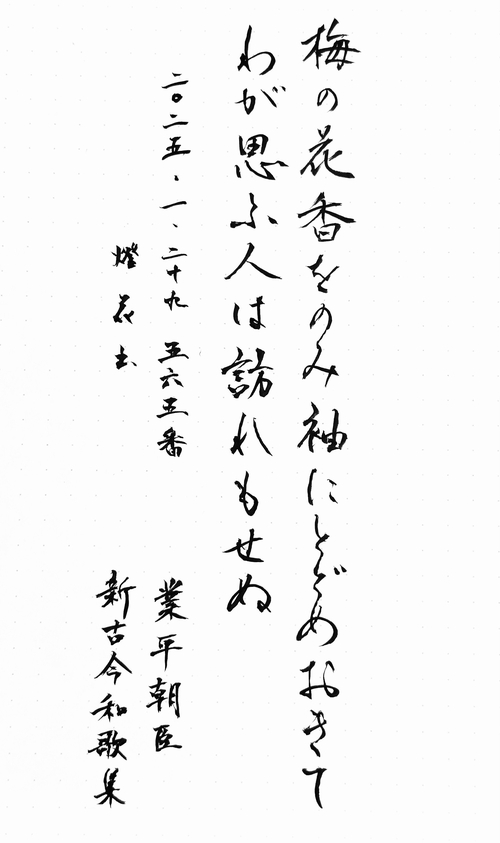 梅の花香をのみ袖にとどめおきて
わが思ふ人は訪れもせぬ
二〇二五、一、二十九 五六五番
業平朝臣
燈花书
新古今和歌集